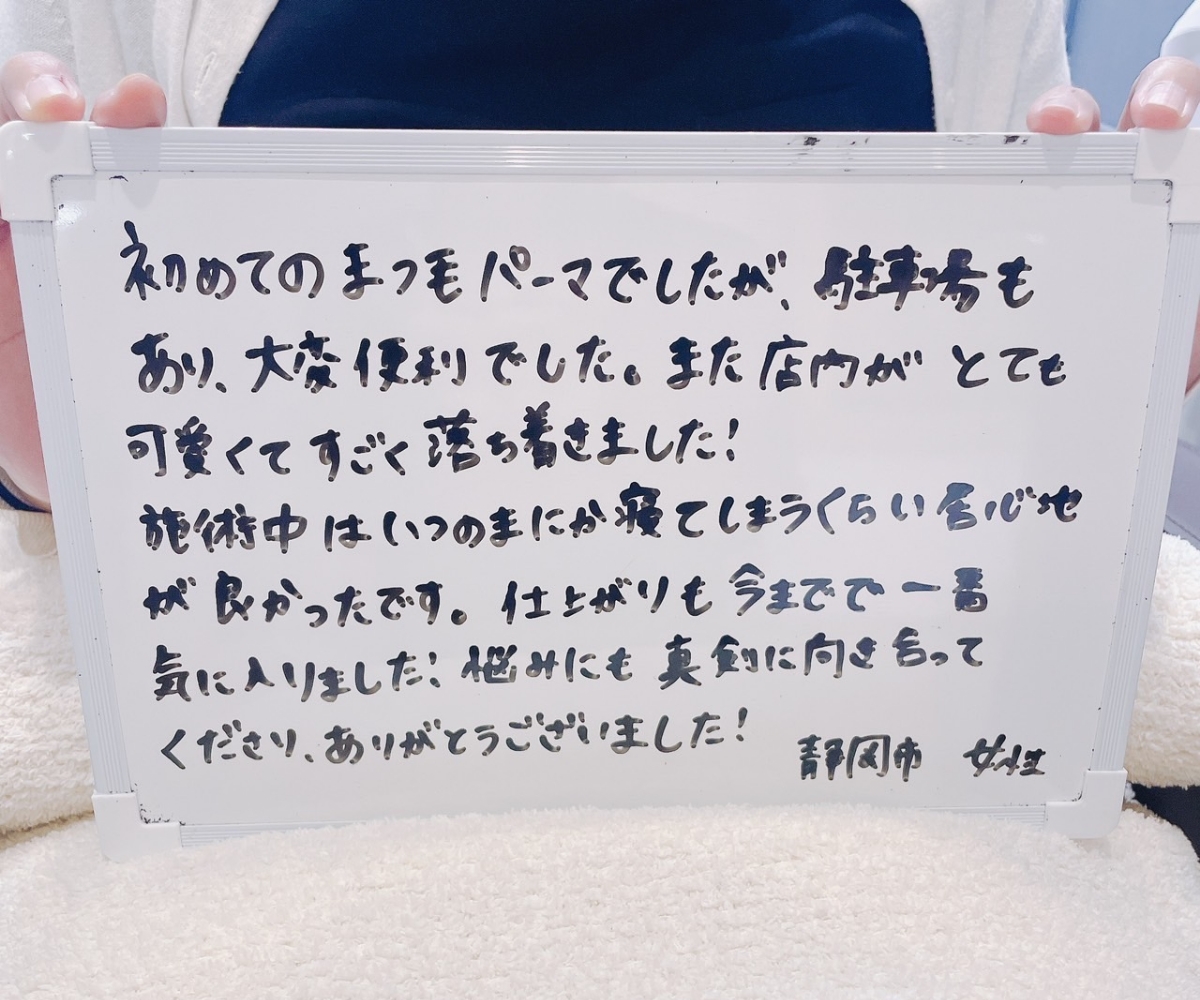 初めてのまつ毛パーマでしたが、駐車場も
あり、大変便利でした。また店内がとても
可愛くてすごく落ち着きました!
施術中はいつのまにか寝てしまうくらい居心地
が良かったです。仕上がりも今までで一番
気に入りました!悩みにも真剣に向き合って
くださり、ありがとうございました!
静岡市 女性